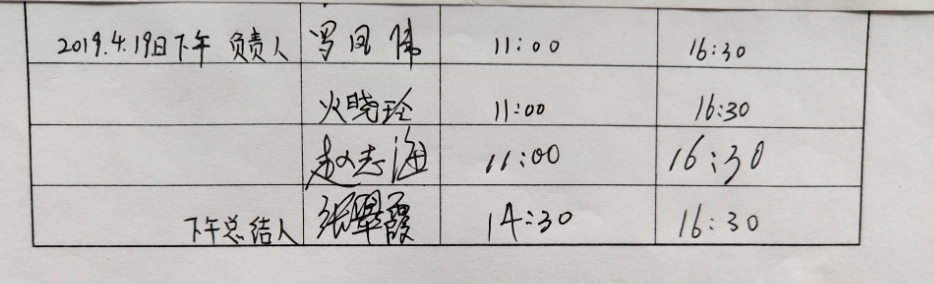 2019.4.19日下午 负责人 罗凤伟 11:00 16:30
火晓玲 11:00 16:30
赵志海 11:00 16:30
下午总结人 张翠霞 14:30 16:30